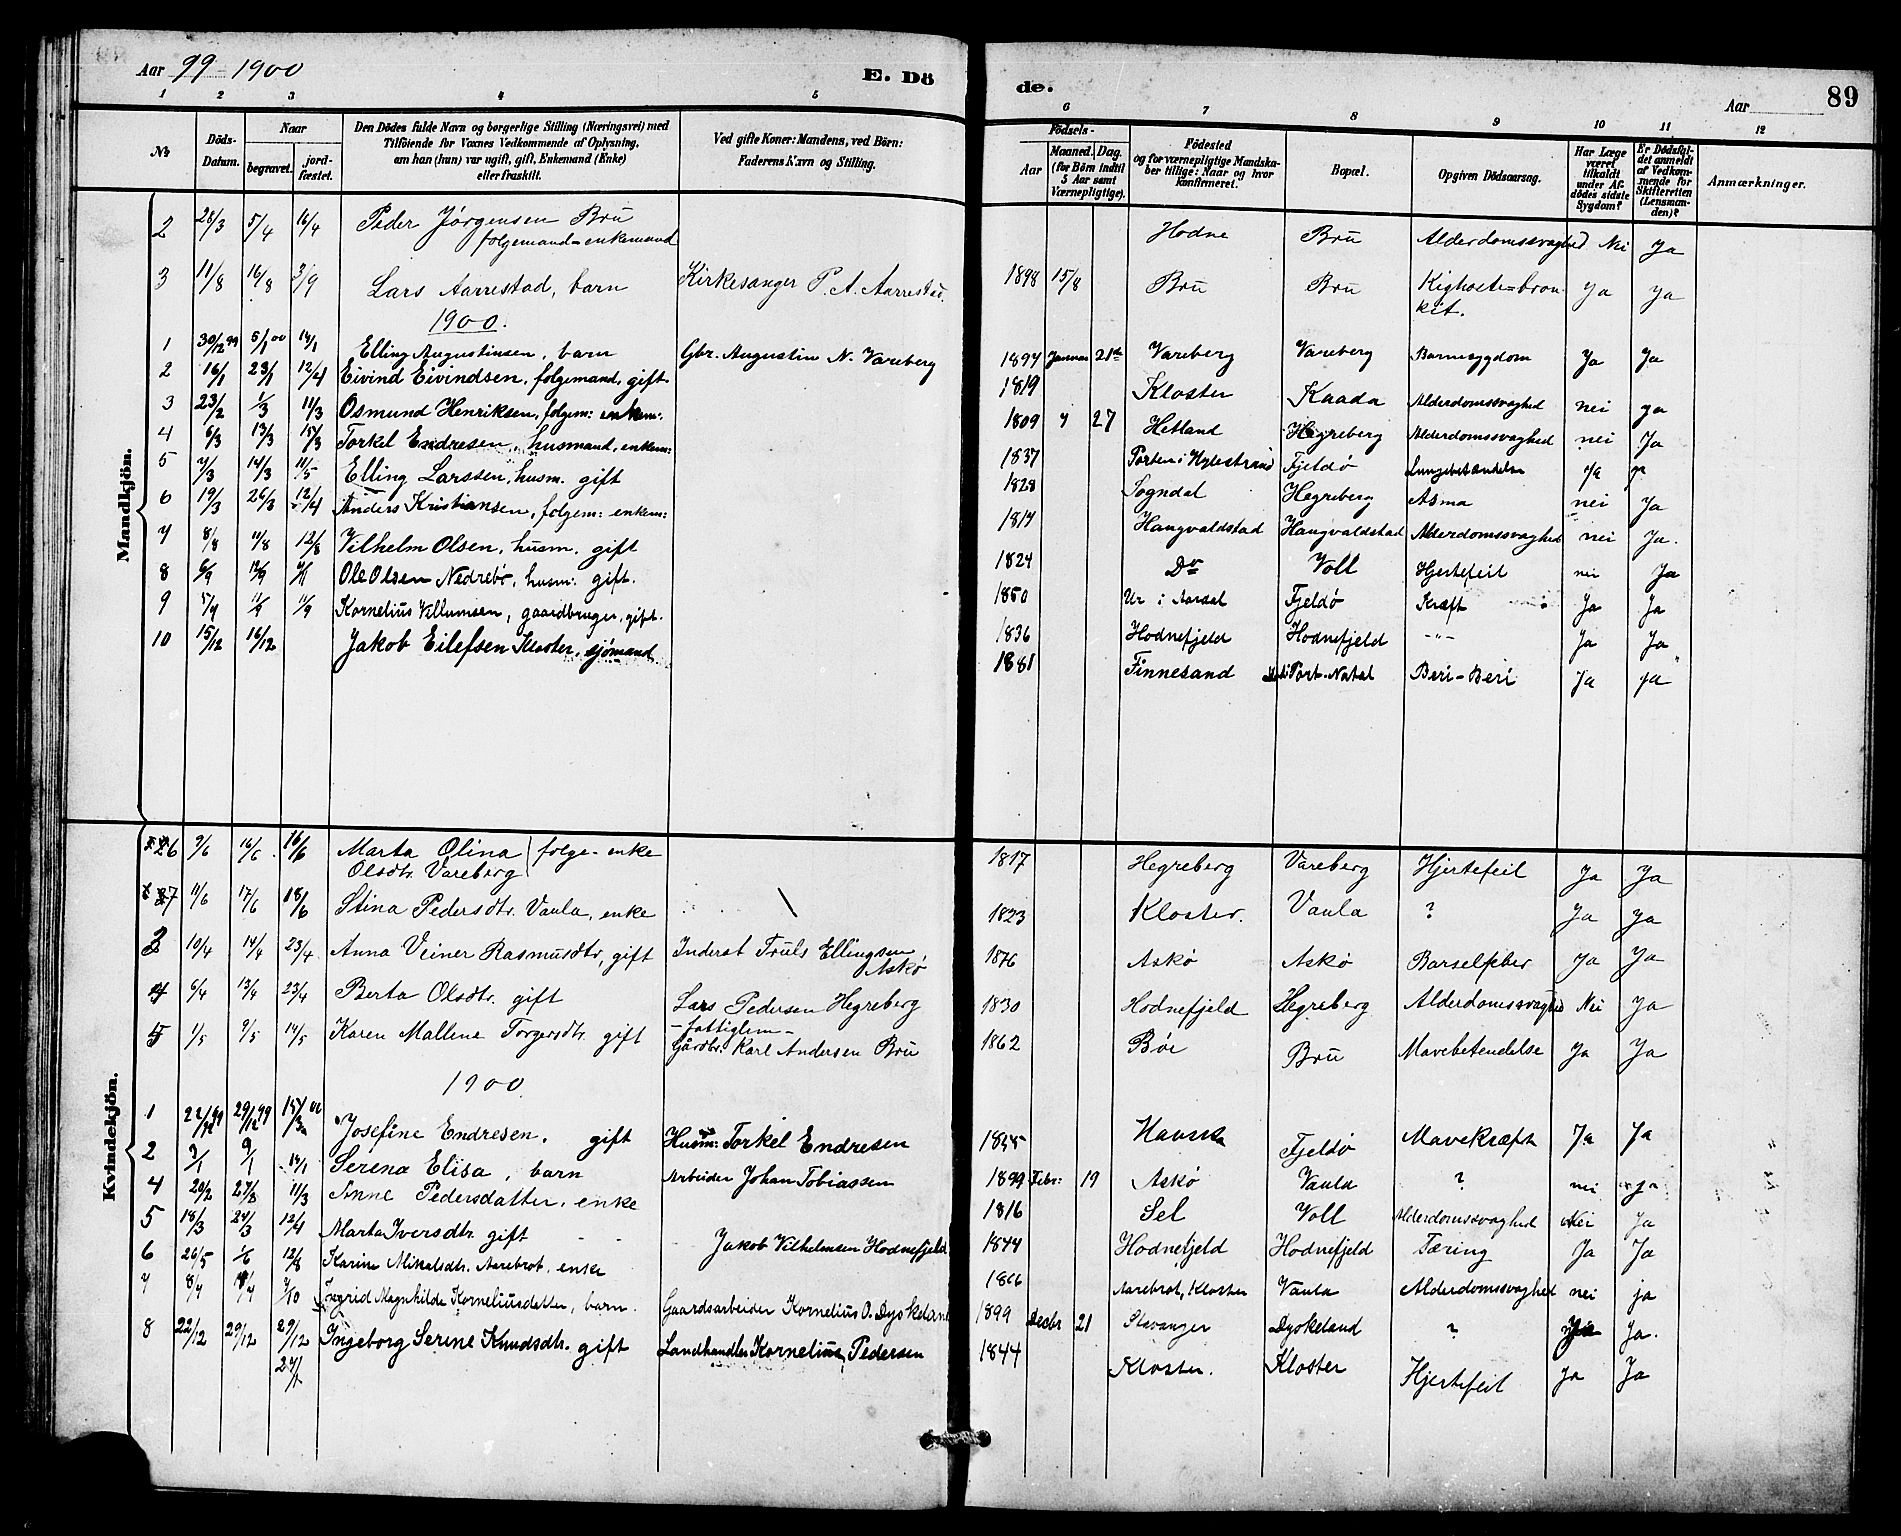 Aar 99-1900 E. Dö
de. Aar 89
1 2 3 4 5 6 7 8 9 10 11 12
No.
Döds-Datum.
Naar
begravet.
jord-fæstet.
Den Dödes fulde Navn og borgerlige Stilling (Næringsvei) med
Tilföiende for Voxnes Vedkommende af Oplysning,
om han (hun) var ugift, gift, Enkemand (Enke)
eller fraskilt.
Ved gifte Koner: Mandens, ved Börn:
Faderens Navn og Stilling.
Födsels-
Aar
Maaned. Dag.
(for Börn indtil
5 Aar samt
Værnepligtige).
Födested
og for værnepligtige Mandska-
ber tillige: Naar og hvor
konfirmeret.
Bopæl.
Opgiven Dödsaarsag.
Har Læge
været
tilkaldt
under Af-
dödes sidste
Sygdom?
Er Dödsfal-
det anmeldt
af Vedkom-
mende for
Skifteretten
(Lensman-
den)?
Anmærkninger.
Mandkjön.
2 28/3 5/4 16/4 Peder Jörgensen Bru Hodne Bru Alderdomssvaghed Nei Ja
folgemand-enkemand
3 11/8 16/8 3/9 Lars Aarrestad, barn Kirkesanger P. A. Aarrestad. 1898 15/8 Bru Bru Kighoste=bron Ja Ja
kit.
1900.
1 30/12 99 5/1 00 14/1 Elling Augustinsen, barn Gbr. Augustin N. Vareberg 1897 Januar 21de Vareberg Vareberg Barnesygdom Ja Ja
2 16/1 23/1 12/4 Eivind Eivindsen, folgemand, gift 1819 Kloster Kaada Alderdomssvaghed nei ja
3 23/2 1/3 11/3 Osmund Henriksen, folgem: enkem: 1809 7 27 Hetland Hegreberg Alderdomssvaghed nei Ja
4 6/3 13/3 15/3 Torkel Endresen, husmand, enkem: 1837 Porten i Hylestrand Fjeldø Lungebetændelse ja ja
5 7/3 14/3 11/5 Elling Larssen, husm. gift 1828 Sogndal Hegreberg Asma nei Ja
6 19/3 26/3 12/4 Anders Kristiansen, folgem: enkem: 1817 Haugvaldstad Haugvaldstad Alderdomssvaghed nei Ja.
7 8/8 11/8 12/8 Vilhelm Olsen, husm. gift 1824 Do Voll Hjertefeil nei Ja
8 6/9 12/9 Ole Olsen Nedrebø, husm. gift. 1850 Ur i Aardal Fjeldø Kræft Ja Ja
9 5/9 11/9 11/9 Kornelius Villumsen, gaardbruger, gift. 1836 Hodnefjeld Hodnefjeld -"- Ja Ja
10 15/12 16/12 Jakob Eilefsen Kloster, sjömand 1881 Finnesand Port-Natal Beri-Beri Ja ja
Kvindekjön.
6 9/6 16/6 16/6 Marta Olina folge-enke 1817 Hegreberg Vareberg Hjertefeil Ja Ja
Olsdtr. Vareberg
7 11/6 17/6 18/6 Stina Pedersdtr. Vaula, enke 1823 Kloster. Vaula ? Ja Ja
3 10/4 14/4 23/4 Anna Veiner Rasmusdtr, gift Inderst Truls Ellingsen 1876 Askø Askø Barselfeber Ja Ja
Askø
4 6/4 13/4 23/4 Berta Olsdtr. gift Lars Pedersen Hegreberg 1830 Hodnefjeld Hegreberg Alderdomssvaghed Nei Ja
-fattiglem-
5 1/5 9/5 14/5 Karen Mallene Torgersdtr. gift Gårdbr. Karl Andersen Bru 1862 Bøe Bru Mavebetendelse Ja Ja
1900.
1 22/12 99 29/12 99 Josefine Endresen. gift Husm: Torkel Endresen 1835 Fjeldø Mavekræft Ja Ja
2 3/1 9/1 14/1 Serena Elisa, barn Arbeider Johan Tobiassen 1899 Febr: 19 Askø Vaula ? nei ja
4 20/2 27/2 11/3 Anne Pedersdatter, enke 1816 Sel Voll Alderdomssvaghed Nei Ja
5 18/3 24/3 12/4 Marta Iversdtr. gift Jakob Vilhelmsen Hodnefjeld 1844 Hodnefjeld Hodnefjeld Tæring Ja Ja
6 26/5 1/6 12/8 Karine Mikalsdtr. Aarebrot, enke Aarebrot, Kloster Vaula Alderdomssvaghed nei ja
7 8/7 7/10 Ingrid Magnhilde Korneliusdatter, barn. Gaardsarbeider Kornelius O. Dyskeland 1899 Decbr 21 Stavanger Dyskeland ? Ja.
8 22/12 29/12 29/12 Ingeborg Serine Knudsdtr. gift Landhandler Kornelius Pedersen 1844 Kloster. Kloster Hjertefeil Ja Ja
27/1